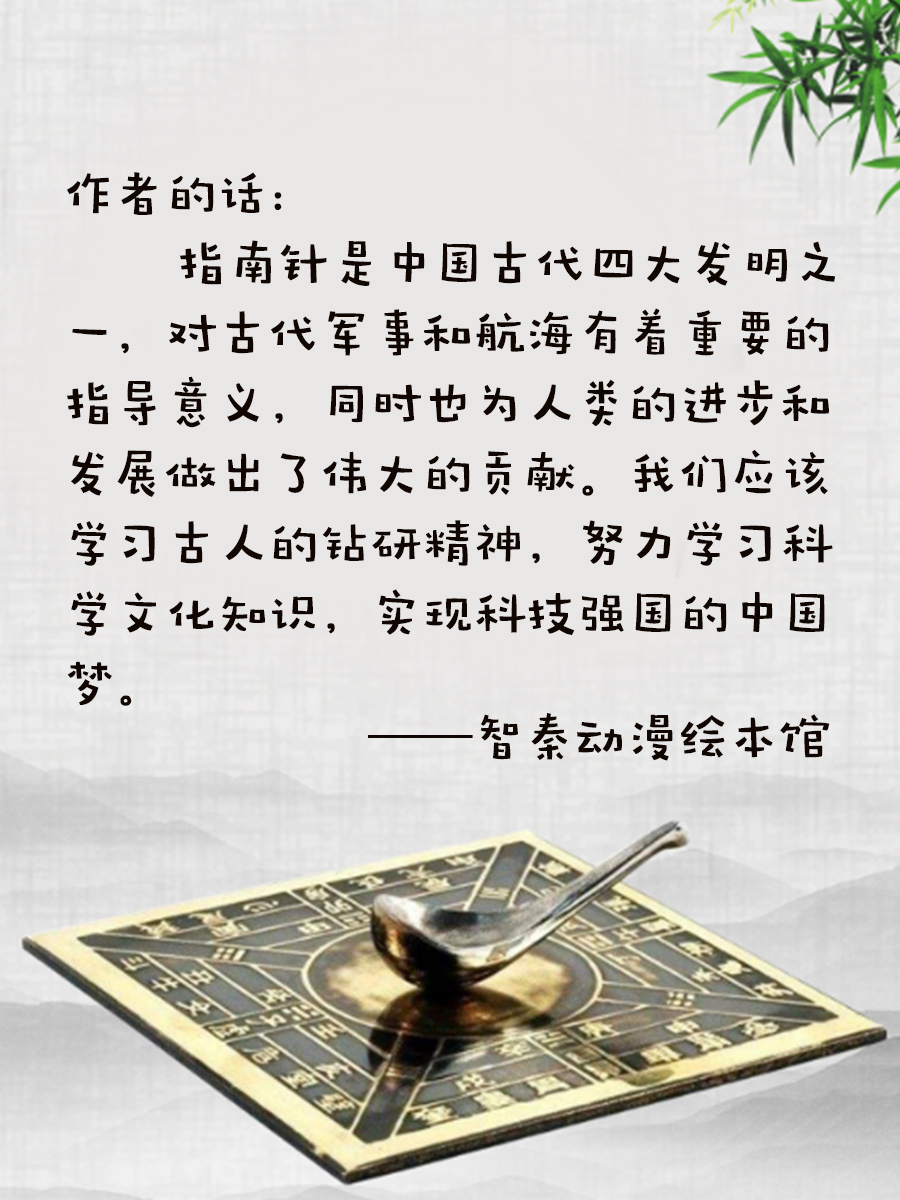 作者的话：
指南针是中国古代四大发明之
一，对古代军事和航海有着重要的
指导意义，同时也为人类的进步和
发展做出了伟大的贡献。我们应该
学习古人的钻研精神，努力学习科
学文化知识，实现科技强国的中国
梦。
——智秦动漫绘本馆